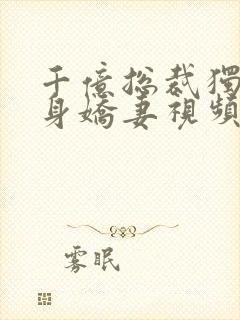 千億總裁獨
身嬌妻視頻
雾眠